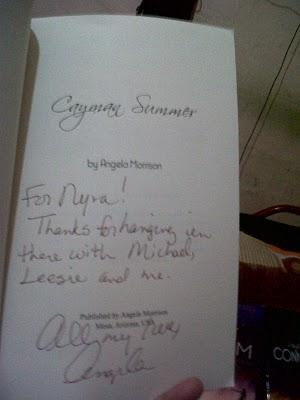 Cayman Summer
by Angela Morrison
For Myra!
Thanks for hanging in
there with Michael,
Leesie and me.
Published by Angela Morrison
Mesa, Arizona, USA
All my
Angela
M
CONN